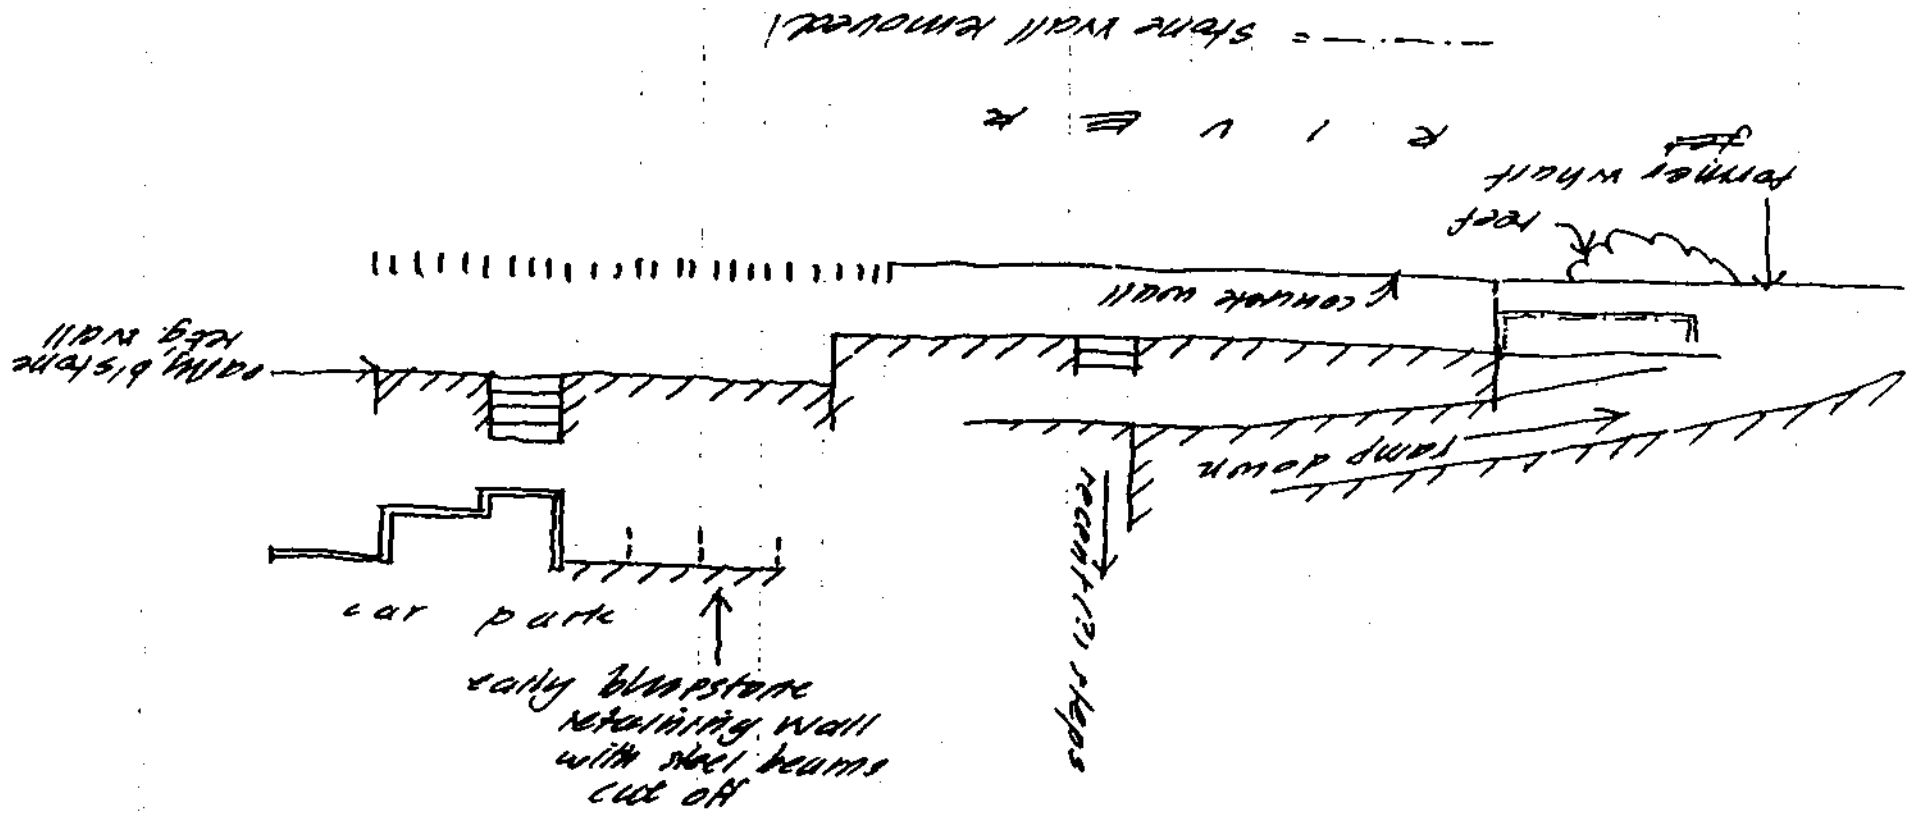 —·—·— = stone wall removed
R I V E R
former wharf
reef
concrete wall
early b'stone
retg. wall
ramp down
recent(?) steps
car park
early bluestone
retaining wall
with steel beams
cut off